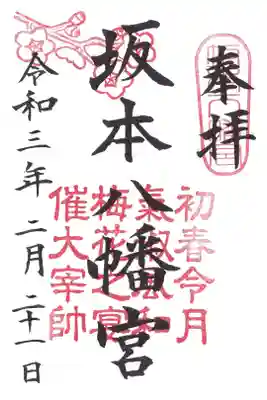 奉拝
坂本八幡宮
初春令月
氣淑風和
梅花之宴
催大宰帥
令和三年二月二十一日